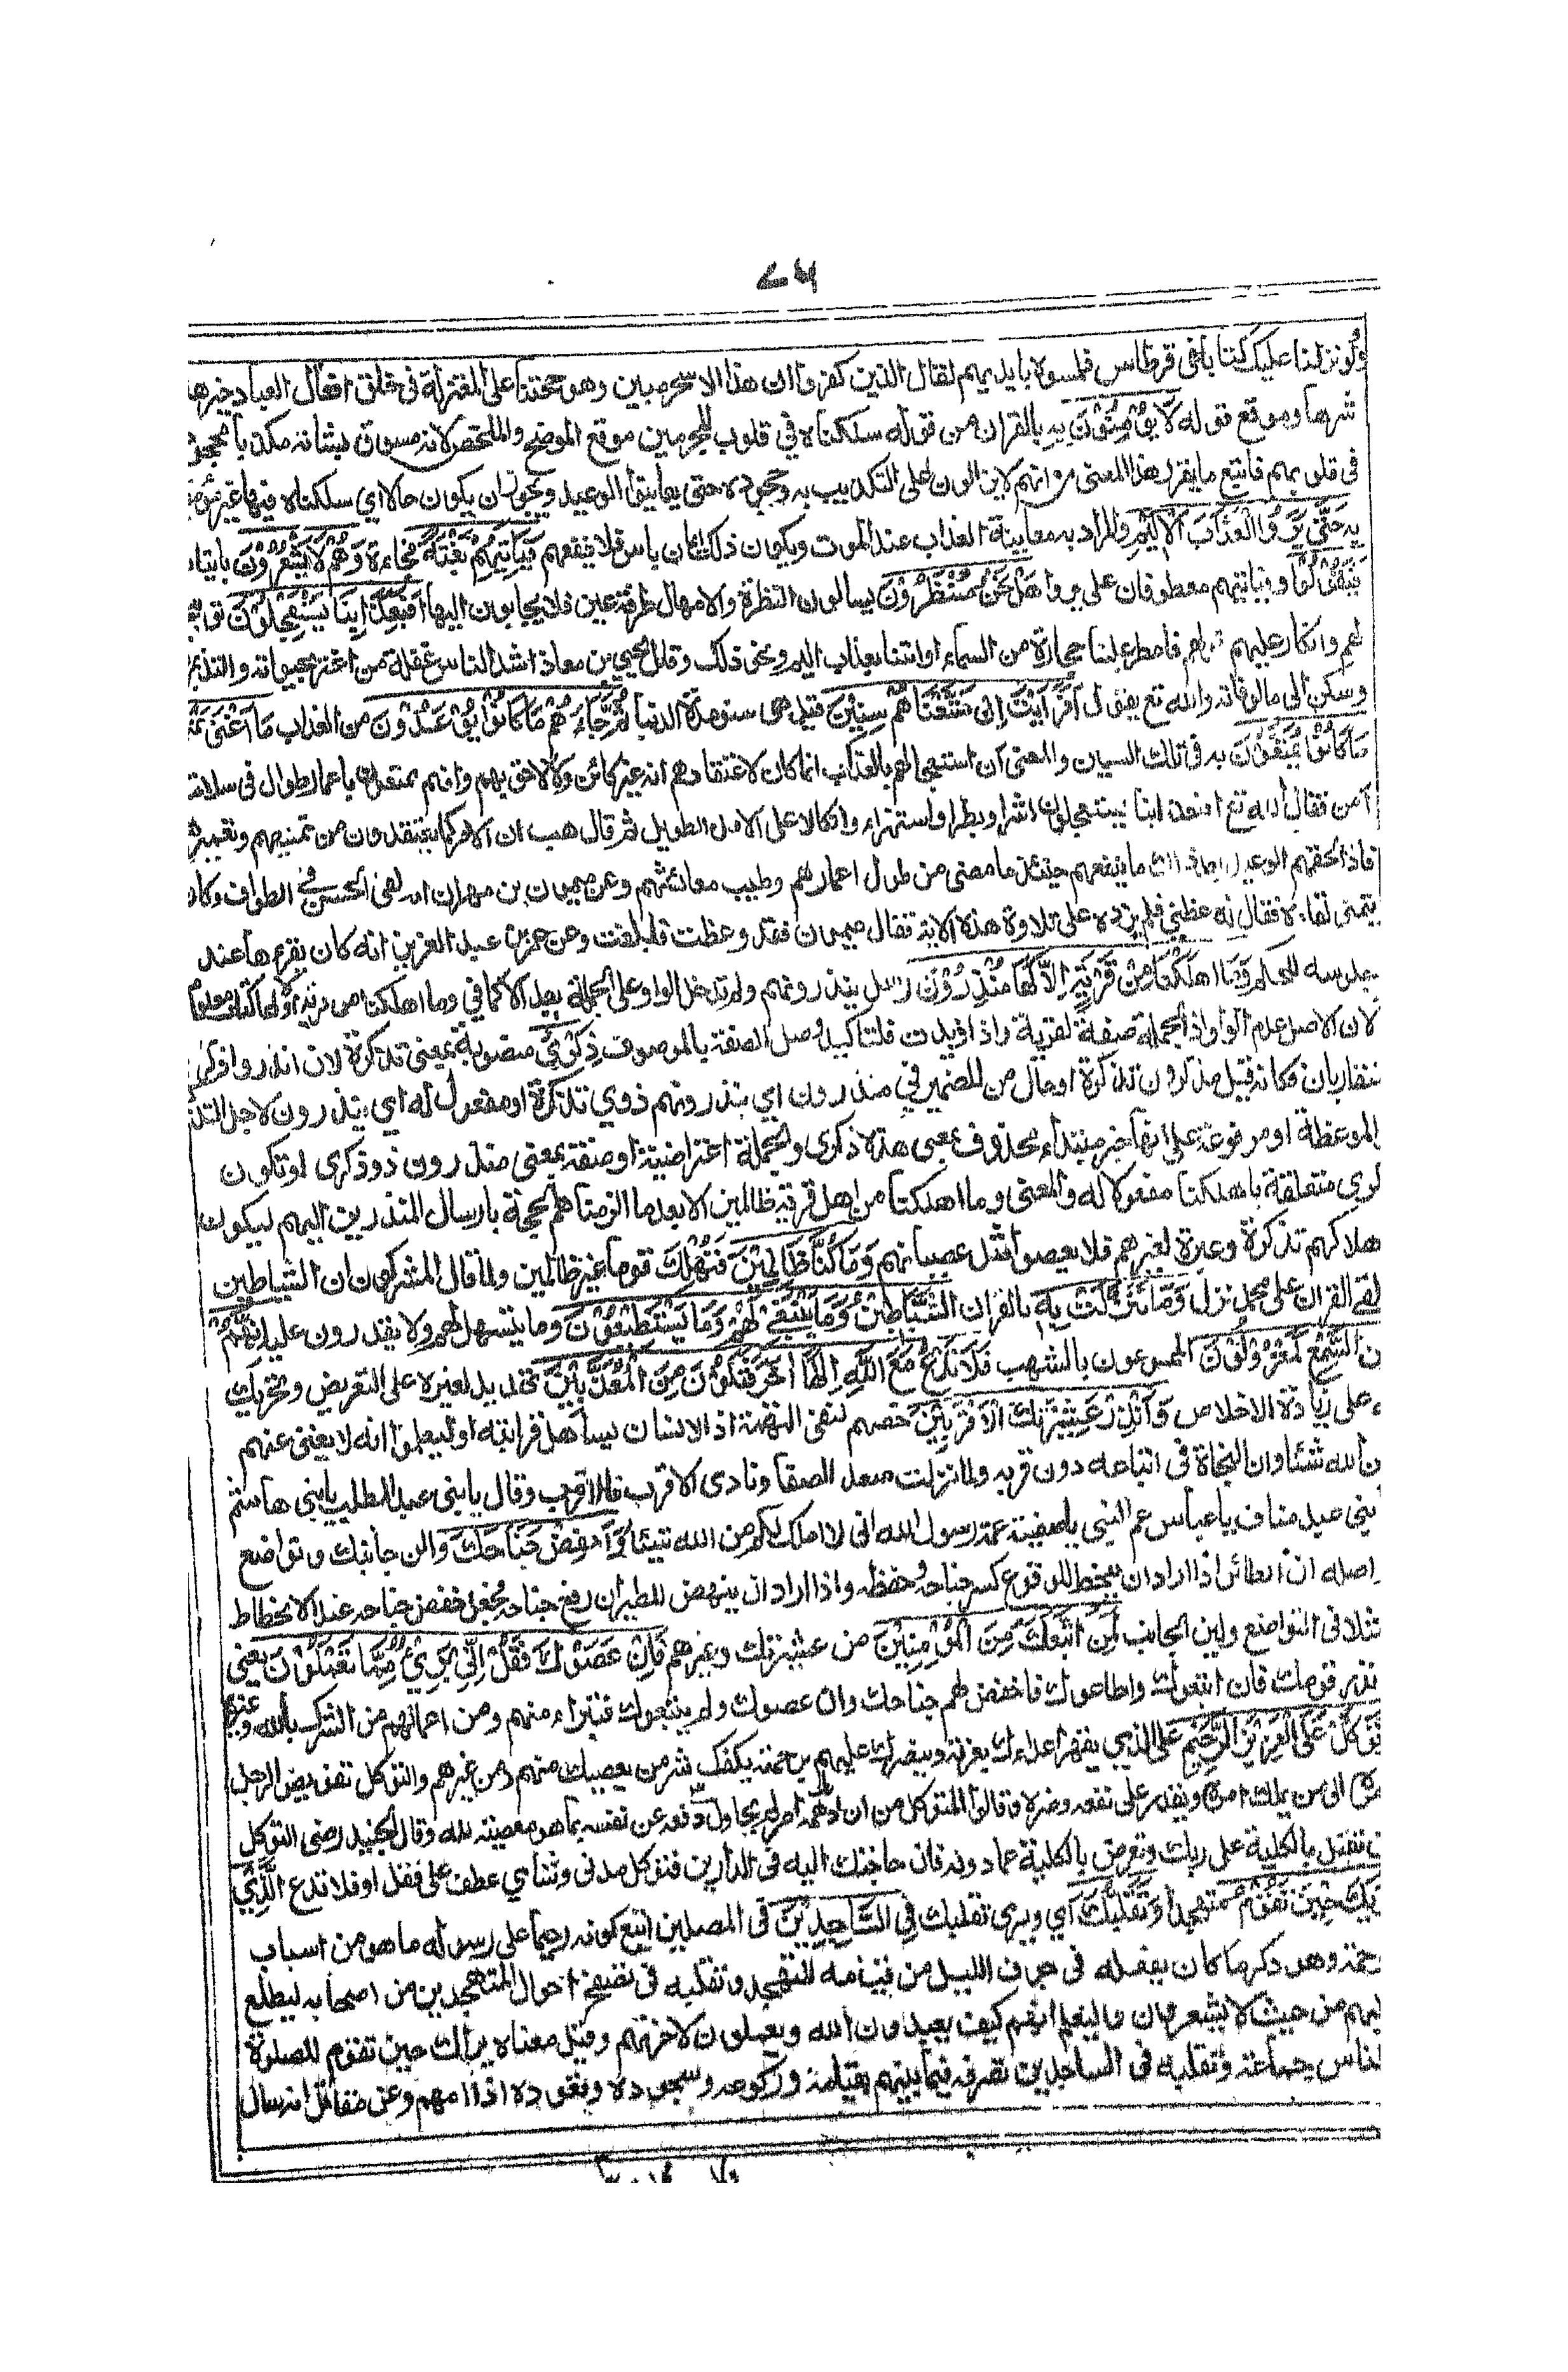 ولو نزلنا عليك كتابا في قرطاس فلمسوه بايديهم لقال الذين كفروا ان هذا الا سحر مبين وهو حجتنا على المعتزلة في خلق افعال العباد خيرها
شرها وموقع قوله لَا يُؤْمِنُوْنَ بِهٖ بالقران من قوله سلكناه في قلوب المجرمين موقع الموضح والملخص لانه مسوق لثباته مكذبا مجحودا
في قلوبهم فاتبع ما يقرر هذا المعنى من انهم لا يزالون على التكذيب به وجحوده حتى يعاينوا الوعيد ويجوز ان يكون حالا اي سلكناه فيها غير مؤمن
به حَتّٰى يَرَوُا الْعَذَابَ الْاَلِيْمَ والمراد به معاينة العذاب عند الموت ويكون ذلك ايمان ياس فلا ينفعهم فَيَأْتِيَهُمْ بَغْتَةً فجاءة وَهُمْ لَا يَشْعُرُوْنَ باتيانه
فَيَقُوْلُوْا وفياتيهم معطوفان على يروا هَلْ نَحْنُ مُنْظَرُوْنَ يسالون النظرة والامهال طرفة عين فلا يجابون اليها اَفَبِعَذَابِنَا يَسْتَعْجِلُوْنَ توبيخ
لهم وانكار عليهم قولهم فامطر علينا حجارة من السماء او ائتنا بعذاب اليم ونحو ذلك وقال يحيى بن معاذ اشد الناس غفلة من اغتر بحيوته والتذ
وسكن الى مالوفاته والله تع يقول اَفَرَاَيْتَ اِنْ مَتَّعْنَاهُمْ سِنِيْنَ قيل هي سنو مدة الدنيا ثُمَّ جَاءَهُمْ مَا كَانُوْا يُوْعَدُوْنَ من العذاب مَا اَغْنٰى عَنْهُمْ
مَا كَانُوْا يُمَتَّعُوْنَ به في تلك السنين والمعنى ان استعجالهم بالعذاب انما كان لاعتقادهم انه غير كائن ولا لاحق بهم وانهم ممتعون باعمار طوال في سلامة
امن فقال الله تع افبعذابنا يستعجلون اشرا وبطرا واستهزاء واتكالا على الامل الطويل ثم قال هب ان الامر كما يعتقدون من تمتيعهم وتعميرهم
فاذا لحقهم الوعيد بعد ذلك ما ينفعهم حينئذ ما مضى من طول اعمارهم وطيب معائشهم وعن ميمون بن مهران انه لقى الحسن في الطواف وكان
يتمنى لقاءه فقال له عظني فلم يزده على تلاوة هذه الاية فقال ميمون فقد وعظت فابلغت وعن عمر بن عبد العزيز انه كان يقرءها عند
جلوسه للحكم وَمَا اَهْلَكْنَا مِنْ قَرْيَةٍ اِلَّا لَهَا مُنْذِرُوْنَ رسل ينذرونهم ولم تدخل الواو على الجملة بعد الا كما في وما اهلكنا من قرية الا ولها كتاب معلوم
لان الاصل عدم الواو اذ الجملة صفة لقرية واذا زيدت فلتاكيد وصل الصفة بالموصوف ذِكْرٰى منصوبة بمعنى تذكرة لان انذر وذكر
متقاربان فكانه قيل مذكرون تذكرة او حال من الضمير في منذرون اي ينذرونهم ذوي تذكرة او مفعول له اي ينذرون لاجل التذكرة
الموعظة او مرفوعة على انها خبر مبتدأ محذوف بمعنى هذه ذكرى والجملة اعتراضية او صفة بمعنى منذرون ذوو ذكرى او تكون
ذكرى متعلقة باهلكنا مفعولا له والمعنى وما اهلكنا من اهل قرية ظالمين الا بعد ما الزمناهم الحجة بارسال المنذرين اليهم ليكون
هلاكهم تذكرة وعبرة لغيرهم فلا يعصوا مثل عصيانهم وَمَا كُنَّا ظَالِمِيْنَ فنهلك قوما غير ظالمين ولما قال المشركون ان الشياطين
تلقي القران على محمد نزل وَمَا تَنَزَّلَتْ بِهِ بالقران الشَّيَاطِيْنُ وَمَا يَنْبَغِيْ لَهُمْ وَمَا يَسْتَطِيْعُوْنَ وما يتسهل لهم ولا يقدرون عليه اِنَّهُمْ
عَنِ السَّمْعِ لَمَعْزُوْلُوْنَ لممنوعون بالشهب فَلَا تَدْعُ مَعَ اللّٰهِ اِلٰهًا اٰخَرَ فَتَكُوْنَ مِنَ الْمُعَذَّبِيْنَ تهديد لغيره على التعريض وتحريك
له على زيادة الاخلاص وَاَنْذِرْ عَشِيْرَتَكَ الْاَقْرَبِيْنَ خصهم لنفي التهمة اذ الانسان يساهل قرابته او ليعلموا انه لا يغني عنهم
من الله شيئا وان النجاة في اتباعه دون قربه ولما نزلت صعد الصفا ونادى الاقرب فالاقرب وقال يا بني عبد المطلب يا بني هاشم
يا بني عبد مناف يا عباس عم النبي يا صفية عمة رسول الله اني لا املك لكم من الله شيئا وَاخْفِضْ جَنَاحَكَ والن جانبك وتواضع
واصله ان الطائر اذا اراد ان ينحط للوقوع كسر جناحه وخفظه واذا اراد ان ينهض للطيران رفع جناحه فجعل خفض جناحه عند الانحطاط
مثلا في التواضع ولين الجانب لِمَنِ اتَّبَعَكَ مِنَ الْمُؤْمِنِيْنَ من عشيرتك وغيرهم فَاِنْ عَصَوْكَ فَقُلْ اِنِّيْ بَرِيْءٌ مِّمَّا تَعْمَلُوْنَ يعني
انذر قومك فان اتبعوك واطاعوك فاخفض لهم جناحك وان عصوك ولم يتبعوك فتبرأ منهم ومن اعمالهم من الشرك بالله وغيره
وَتَوَكَّلْ عَلَى الْعَزِيْزِ الرَّحِيْمِ على الذي يقهر اعداءك بعزته وينصرك عليهم برحمته يكفك شر من يعصيك منهم ومن غيرهم والتوكل تفويض الرجل
امره الى من يملك امره ويقدر على نفعه وضره وقالوا المتوكل من ان دهمه امر لم يحاول دفعه عن نفسه بما هو معصية لله وقال الجنيد رضى التوكل
ان تقبل بالكلية على ربك وتعرض بالكلية عما دونه فان حاجتك اليه في الدارين فتوكل مدني وشامي عطف على فقل او فلا تدع الَّذِيْ
يَرَاكَ حِيْنَ تَقُوْمُ متهجدا وَتَقَلُّبَكَ اي ويرى تقلبك فِي السَّاجِدِيْنَ في المصلين اتبع كونه رحيما على رسوله ما هو من اسباب
الرحمة وهو ذكر ما كان يفعله في جوف الليل من قيامه للتهجد وتقلبه في تصفح احوال المتهجدين من اصحابه ليطلع
عليهم من حيث لا يشعرون وليعلم انهم كيف يعبدون الله ويعملون لاخرتهم وقيل معناه يراك حين تقوم للصلوة
بالناس جماعة وتقلبه في الساجدين تصرفه فيما بينهم بقيامه وركوعه وسجوده وقعوده اذا امهم وعن مقاتل انه سال